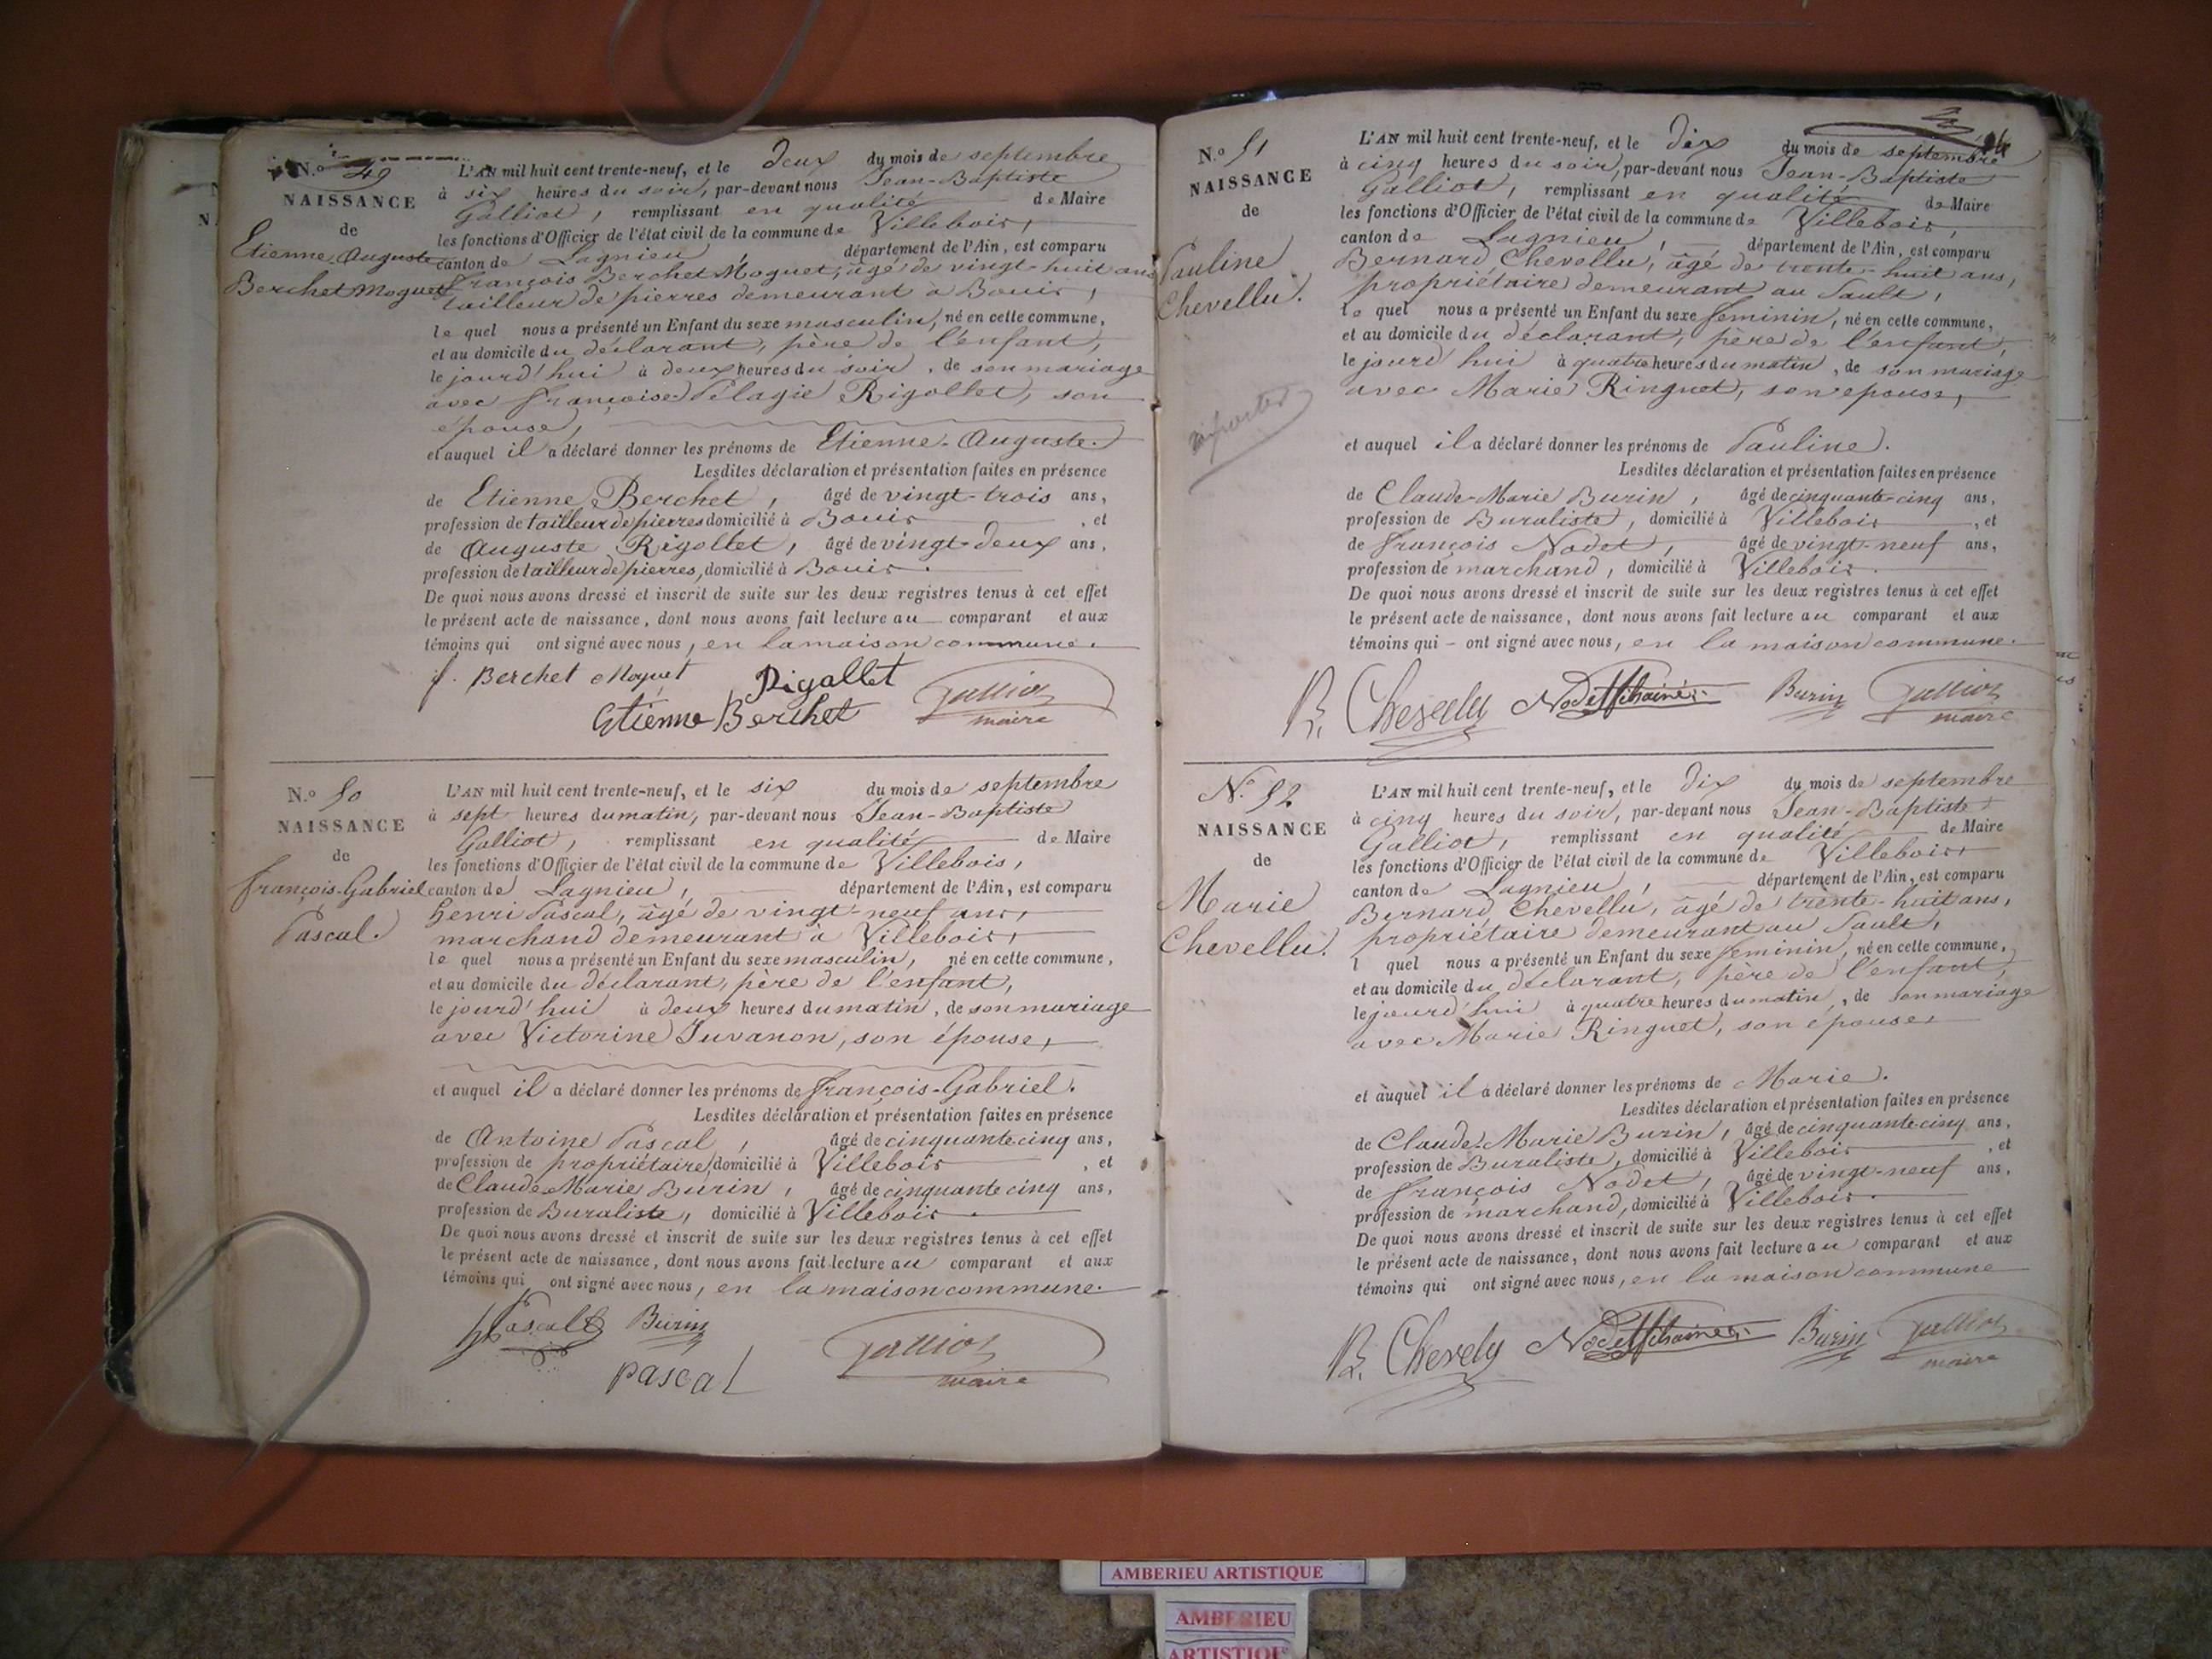 N.o 49
NAISSANCE
de
Etienne-Auguste
Berchet Moguet
L'AN mil huit cent trente-neuf, et le deux du mois de septembre
à six heures du soir, par-devant nous Jean-Baptiste
Galliot, remplissant en qualité de Maire
les fonctions d'Officier de l'état civil de la commune de Villebois,
canton de Lagnieu, département de l'Ain, est comparu
François Berchet Moguet, âgé de vingt-huit ans
tailleur de pierres demeurant à Bouis,
le quel nous a présenté un Enfant du sexe masculin, né en cette commune,
et au domicile du déclarant, père de l'enfant,
le jourd'hui à deux heures du soir, de son mariage
avec Françoise Pélagie Rigollet, son
épouse,
et auquel il a déclaré donner les prénoms de Etienne-Auguste.
Lesdites déclaration et présentation faites en présence
de Etienne Berchet, âgé de vingt-trois ans,
profession de tailleur de pierres domicilié à Bouis, et
de Auguste Rigollet, âgé de vingt-deux ans,
profession de tailleur de pierres, domicilié à Bouis.
De quoi nous avons dressé et inscrit de suite sur les deux registres tenus à cet effet
le présent acte de naissance, dont nous avons fait lecture au comparant et aux
témoins qui ont signé avec nous, en la maison commune.
f. Berchet Moguet Rigollet
Etienne Berchet Galliot
maire
N.o 50
NAISSANCE
de
François-Gabriel
Pascal.
L'AN mil huit cent trente-neuf, et le six du mois de septembre
à sept heures du matin, par-devant nous Jean-Baptiste
Galliot, remplissant en qualité de Maire
les fonctions d'Officier de l'état civil de la commune de Villebois,
canton de Lagnieu, département de l'Ain, est comparu
Henri Pascal, âgé de vingt-neuf ans,
marchand demeurant à Villebois,
le quel nous a présenté un Enfant du sexe masculin, né en cette commune,
et au domicile du déclarant, père de l'enfant,
le jourd'hui à deux heures du matin, de son mariage
avec Victorine Juvanon, son épouse,
et auquel il a déclaré donner les prénoms de François-Gabriel.
Lesdites déclaration et présentation faites en présence
de Antoine Pascal, âgé de cinquante cinq ans,
profession de propriétaire, domicilié à Villebois, et
de Claude-Marie Burin, âgé de cinquante cinq ans,
profession de Buraliste, domicilié à Villebois.
De quoi nous avons dressé et inscrit de suite sur les deux registres tenus à cet effet
le présent acte de naissance, dont nous avons fait lecture au comparant et aux
témoins qui ont signé avec nous, en la maison commune.
Pascal Burin
Pascal Galliot
maire
N.o 51
NAISSANCE
de
Pauline
Chevellu.
L'AN mil huit cent trente-neuf, et le dix du mois de septembre
à cinq heures du soir, par-devant nous Jean-Baptiste
Galliot, remplissant en qualité de Maire
les fonctions d'Officier de l'état civil de la commune de Villebois,
canton de Lagnieu, département de l'Ain, est comparu
Bernard Chevellu, âgé de trente-huit ans,
propriétaire demeurant au Sault,
le quel nous a présenté un Enfant du sexe feminin, né en cette commune,
et au domicile du déclarant, père de l'enfant,
le jourd'hui à quatre heures du matin, de son mariage
avec Marie Ringuet, son epouse,
et auquel il a déclaré donner les prénoms de Pauline.
Lesdites déclaration et présentation faites en présence
de Claude-Marie Burin, âgé de cinquante-cinq ans,
profession de Buraliste, domicilié à Villebois, et
de François Nodet, âgé de vingt-neuf ans,
profession de marchand, domicilié à Villebois.
De quoi nous avons dressé et inscrit de suite sur les deux registres tenus à cet effet
le présent acte de naissance, dont nous avons fait lecture au comparant et aux
témoins qui - ont signé avec nous, en la maison commune.
B. Chevelu Burin Galliot
maire
N.o 52
NAISSANCE
de
Marie
Chevellu.
L'AN mil huit cent trente-neuf, et le dix du mois de septembre
à cinq heures du soir, par-devant nous Jean-Baptiste
Galliot, remplissant en qualité de Maire
les fonctions d'Officier de l'état civil de la commune de Villebois,
canton de Lagnieu, département de l'Ain, est comparu
Bernard Chevellu, âgé de trente-huit ans,
propriétaire demeurant au Sault,
l quel nous a présenté un Enfant du sexe feminin, né en cette commune,
et au domicile du déclarant, père de l'enfant,
le jourd'hui à quatre heures du matin, de son mariage
avec Marie Ringuet, son épouse,
et auquel il a déclaré donner les prénoms de Marie.
Lesdites déclaration et présentation faites en présence
de Claude-Marie Burin, âgé de cinquante cinq ans,
profession de Buraliste, domicilié à Villebois, et
de François Nodet, âgé de vingt-neuf ans,
profession de marchand, domicilié à Villebois.
De quoi nous avons dressé et inscrit de suite sur les deux registres tenus à cet effet
le présent acte de naissance, dont nous avons fait lecture au comparant et aux
témoins qui ont signé avec nous, en la maison commune
B. Chevelu Burin Galliot
maire
AMBERIEU ARTISTIQUE
AMBERIEU